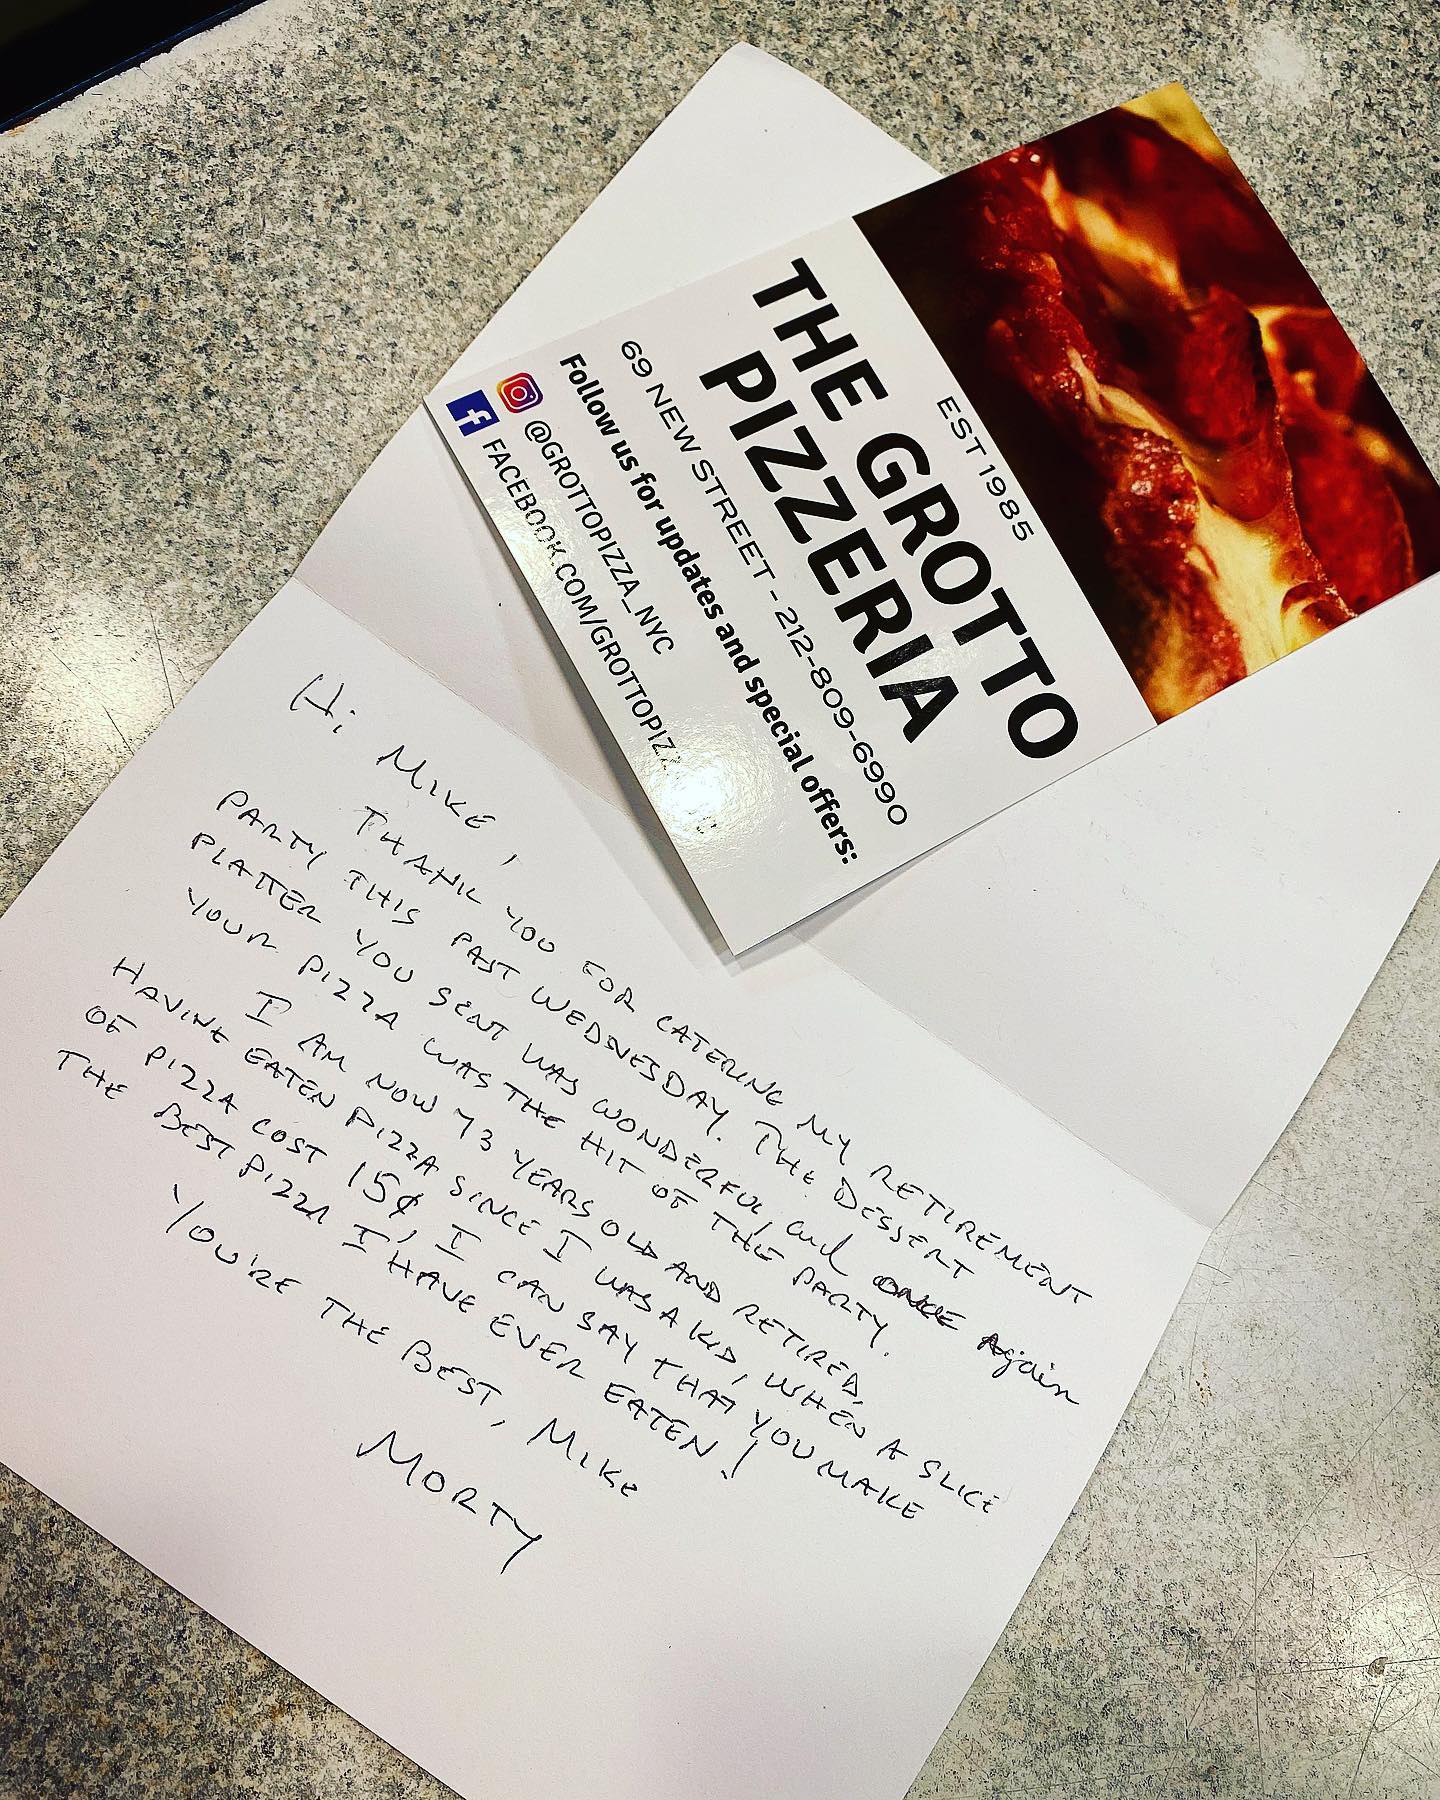 EST 1985
THE GROTTO
PIZZERIA
69 NEW STREET - 212-809-6990
Follow us for updates and special offers:
@GROTTOPIZZA_NYC
FACEBOOK.COM/GROTTOPIZ
Hi MIKE,
THANK YOU FOR CATERING MY RETIREMENT
PARTY THIS PAST WEDNESDAY. THE DESSERT
PLATTER YOU SENT WAS WONDERFUL, and ONCE AgAin
YOUR PIZZA WAS THE HIT OF THE PARTY.
I AM NOW 73 YEARS OLD AND RETIRED,
HAVING EATEN PIZZA SINCE I WAS A KID, WHEN A SLICE
OF PIZZA COST 15¢, I CAN SAY THAT YOU MAKE
THE BEST PIZZA I HAVE EVER EATEN!
YOU'RE THE BEST, MIKE
MORTY